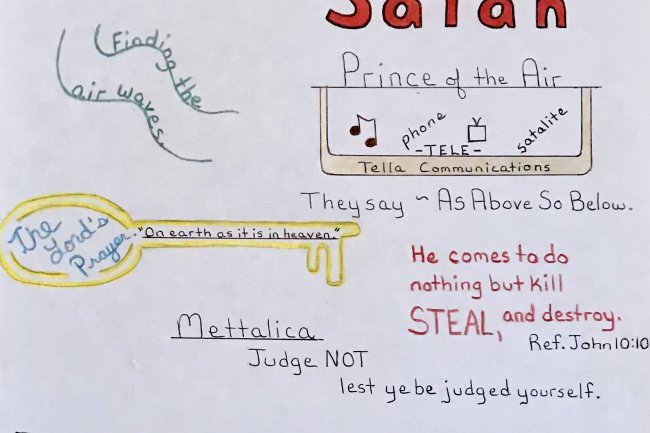 Satan
Finding the
air waves.
Prince of the Air
phone
satalite
-TELE-
Tella Communications
They say ~ As Above So Below.
The
Lord's
Prayer.
"On earth as it is in heaven."
He comes to do
nothing but kill
STEAL, and destroy.
Ref. John 10:10
Mettalica
Judge NOT
lest ye be judged yourself.